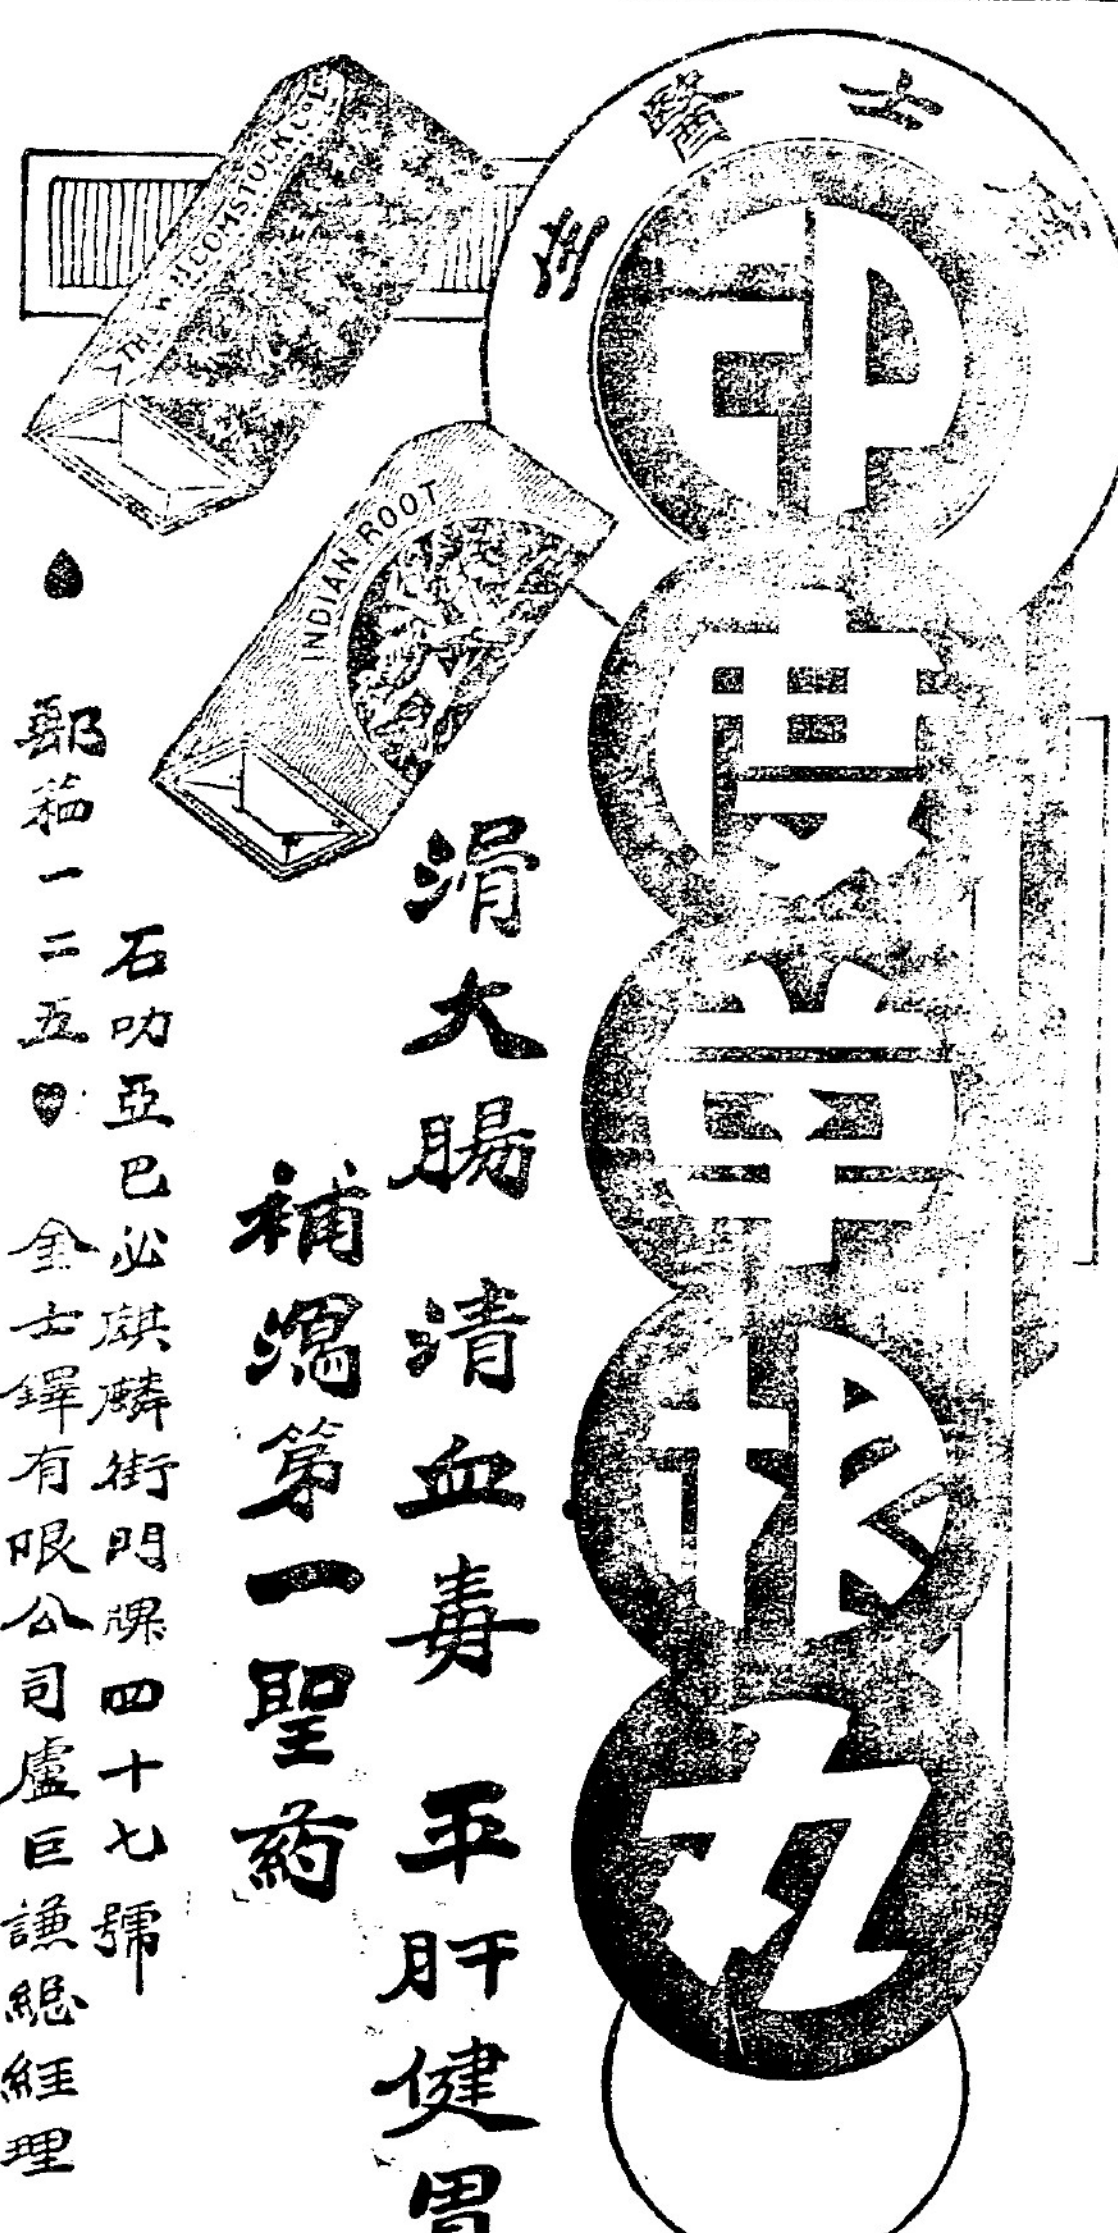 士醫生
印度草根丸
THE W.H. COMSTOCK CO LD
INDIAN ROOT
滑大腸 清血毒 平肝健胃
補瀉第一聖葯
石叻亞巴必麒麟街門牌四十七號
郵箱一二五 金士鐸有限公司盧巨謙總經理